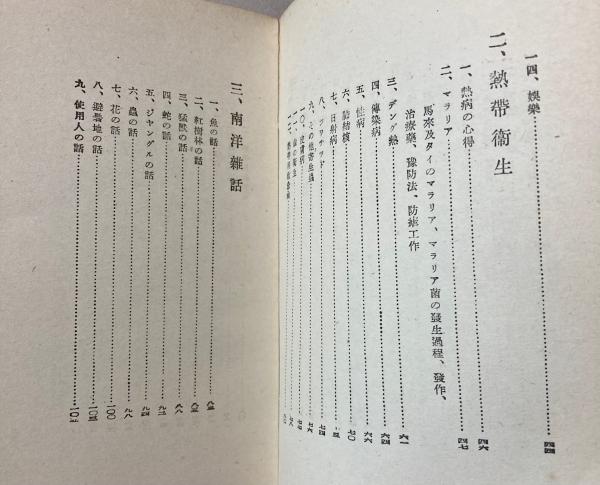 一四、娯樂 四四
二、熱帶衞生
一、熱病の心得 四六
二、マラリア 四七
馬來及タイのマラリア、マラリア菌の發生過程、發作、
治療藥、豫防法、防瘧工作
三、デング熱 六一
四、傳染病 六四
五、性病 六六
六、肺結核 七〇
七、日射病
八、 七四
九、その他寄生蟲 七六
一〇、皮膚病 七七
一一、 衞生 七八
一二、
三、南洋雜話
一、魚の話
二、紅樹林の話
三、猛獸の話 八八
四、蛇の話
五、ジヤングルの話 九四
六、蟲の話 九八
七、花の話 一〇〇
八、避暑地の話
九、使用人の話